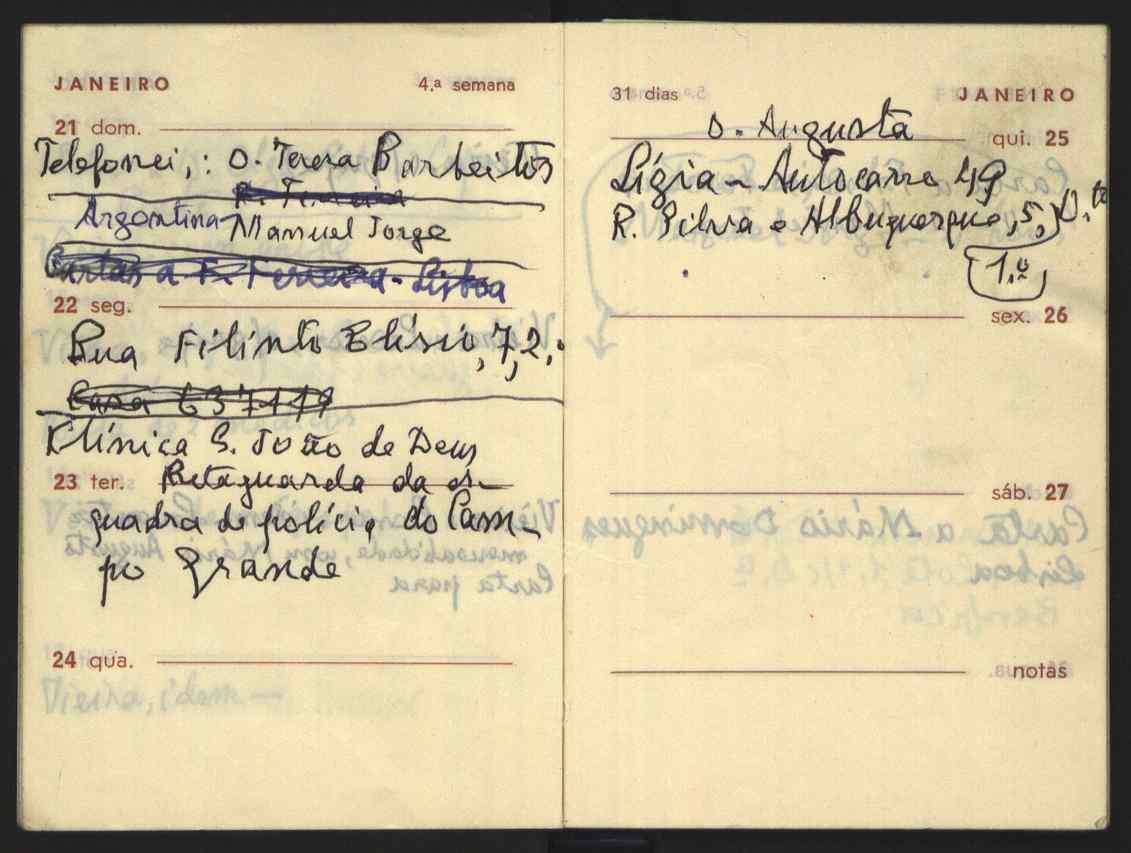 JANEIRO 4.ª semana
21 dom.
Telefonei,: D. Teresa Barbeitos
R. Ferreira
Argentina - Manuel Jorge
Cartas a F. Ferreira - Lisboa
22 seg.
Rua Filinto Elísio, 7, 2.º
Casa 637119
Klínica S. João de Deus
23 ter. Retaguarda da es-
quadra de polícia do Cam-
po Grande
24 qua.
Vieira, idem —
31 dias JANEIRO
D. Augusta
qui. 25
Lígia - Autocarro 49
R. Silva e Albuquerque, 5, D.to
1.º
sex. 26
sáb. 27
Carta a Mário Domingues
Lisboa
notas